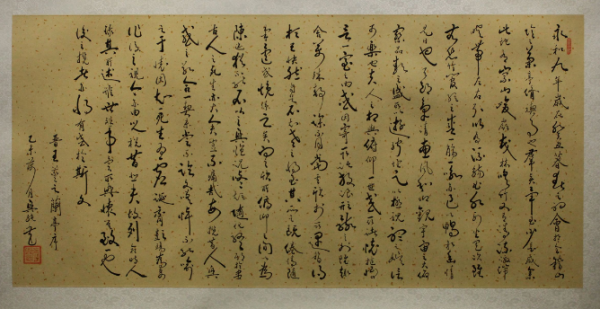 永和九年歲在癸丑暮春之初會於會稽山
陰之蘭亭修禊事也群賢畢至少長咸集
此地有崇山峻嶺茂林修竹又有清流激湍
映帶左右引以為流觴曲水列坐其次雖
無絲竹管弦之盛一觴一詠亦足以暢敘幽情
是日也天朗氣清惠風和暢仰觀宇宙之大俯
察品類之盛所以遊目騁懷足以極視聽之娛信
可樂也夫人之相與俯仰一世或取諸懷抱悟
言一室之內或因寄所託放浪形骸之外雖趣
舍萬殊靜躁不同當其欣於所遇暫得
於己快然自足不知老之將至及其所之既倦情隨
事遷感慨係之矣向之所欣俛仰之間以為
陳跡猶不能不以之興懷況修短隨化終期於盡
古人云死生亦大矣豈不痛哉每攬昔人興
感之由若合一契未嘗不臨文嗟悼不能喻
之於懷固知一死生為虛誕齊彭殤為妄
作後之視今亦由今之視昔悲夫故列敘時人
錄其所述雖世殊事異所以興懷其致一也
後之攬者亦將有感於斯文
晉王羲之蘭亭序